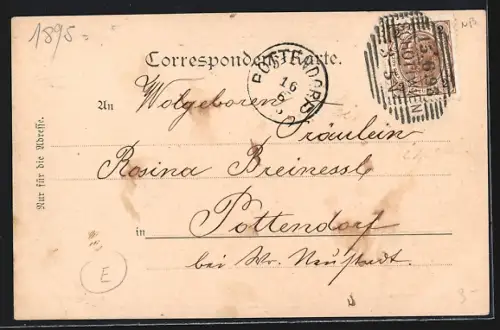 1895
Correspondenz-Karte.
POTTENDORF
16
6
SCHOTTWIEN
An Wolgeboren
Fräulein
Rosina Breinessl
in Pottendorf
bei Wr. Neustadt.
Nur für die Adresse.
E
3-